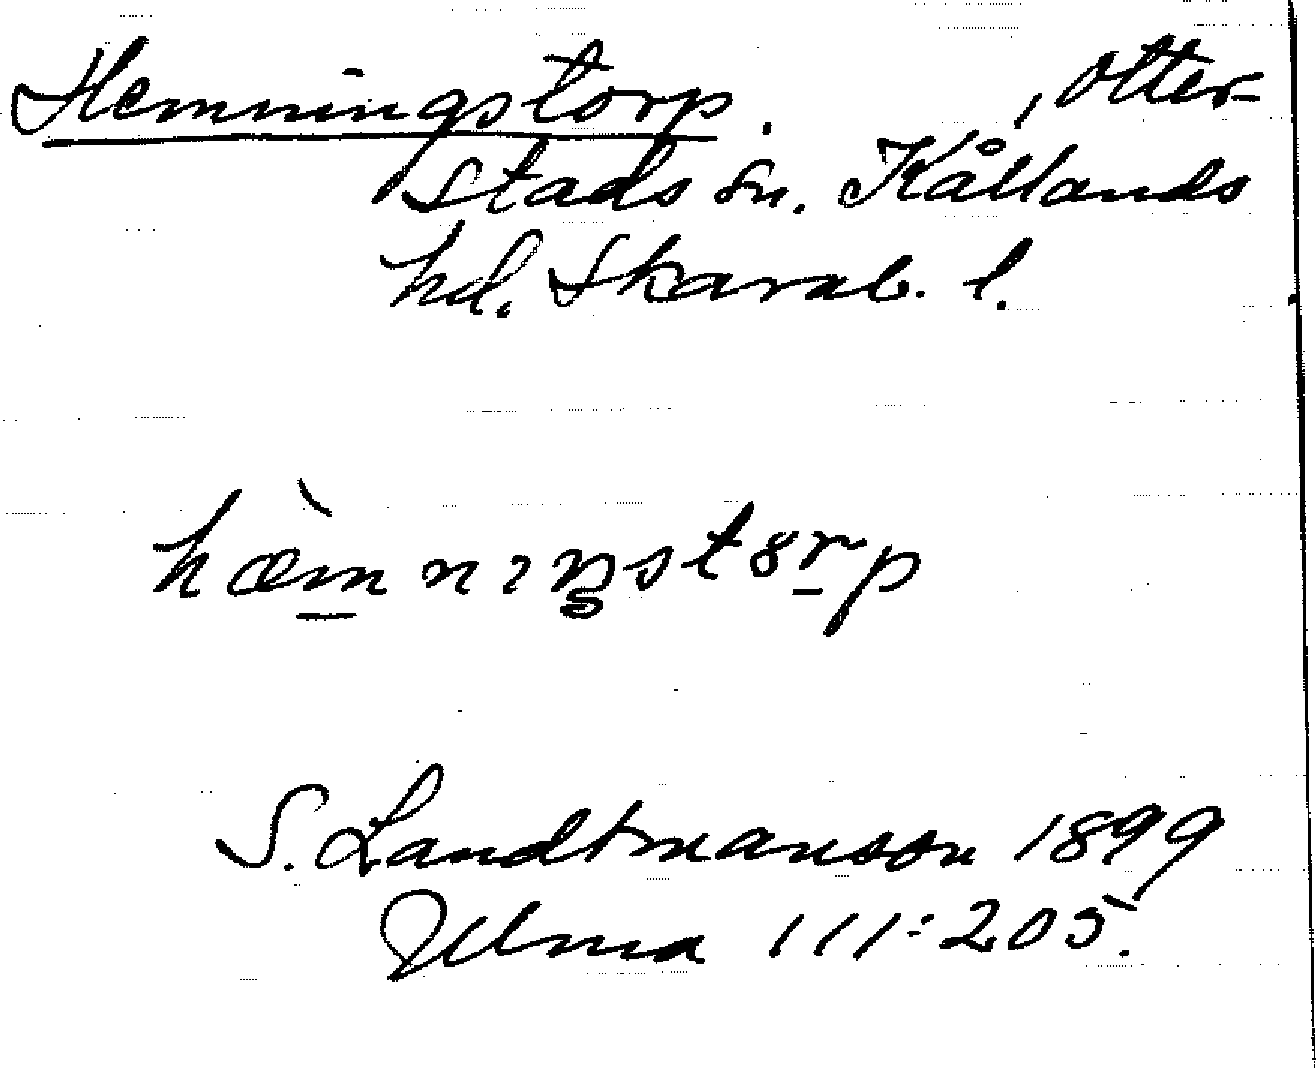 Hemningstorp. , Otter-
stads sn. Kållands
hd. Skarab. l.
hæ̀m̲nıŋstȣr̲p
S. Landtmanson 1899
Ulma 111:205.